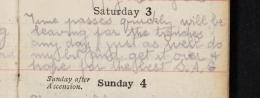 Saturday 3
Time passes quickly will be
leaving for the trenches
any day just as well do
my bit and get it over &
hope for the best S.A.G
Sunday after
Ascension.
Sunday 4